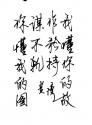 我懂你的故
作矜持
你懂我的图
谋不轨